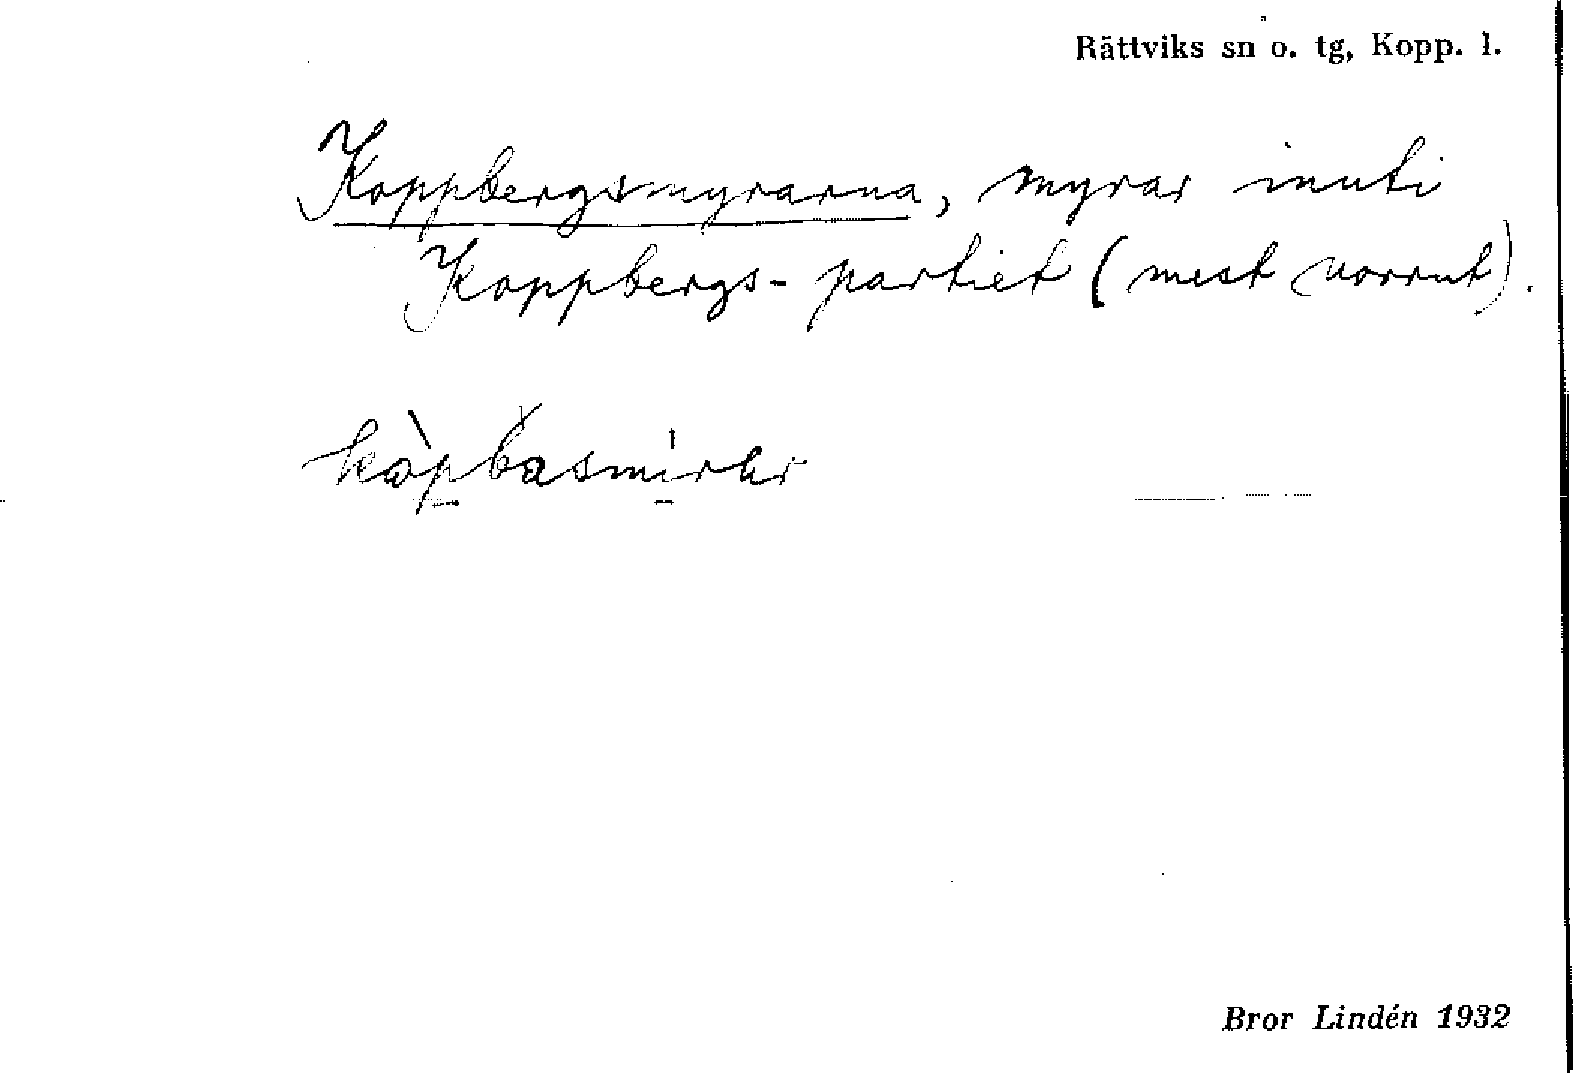 Rättviks sn o. tg, Kopp. l.
Koppbergsmyrarna, myrar inuti
Koppbergs-partiet (mest norrut).
Bror Lindén 1932